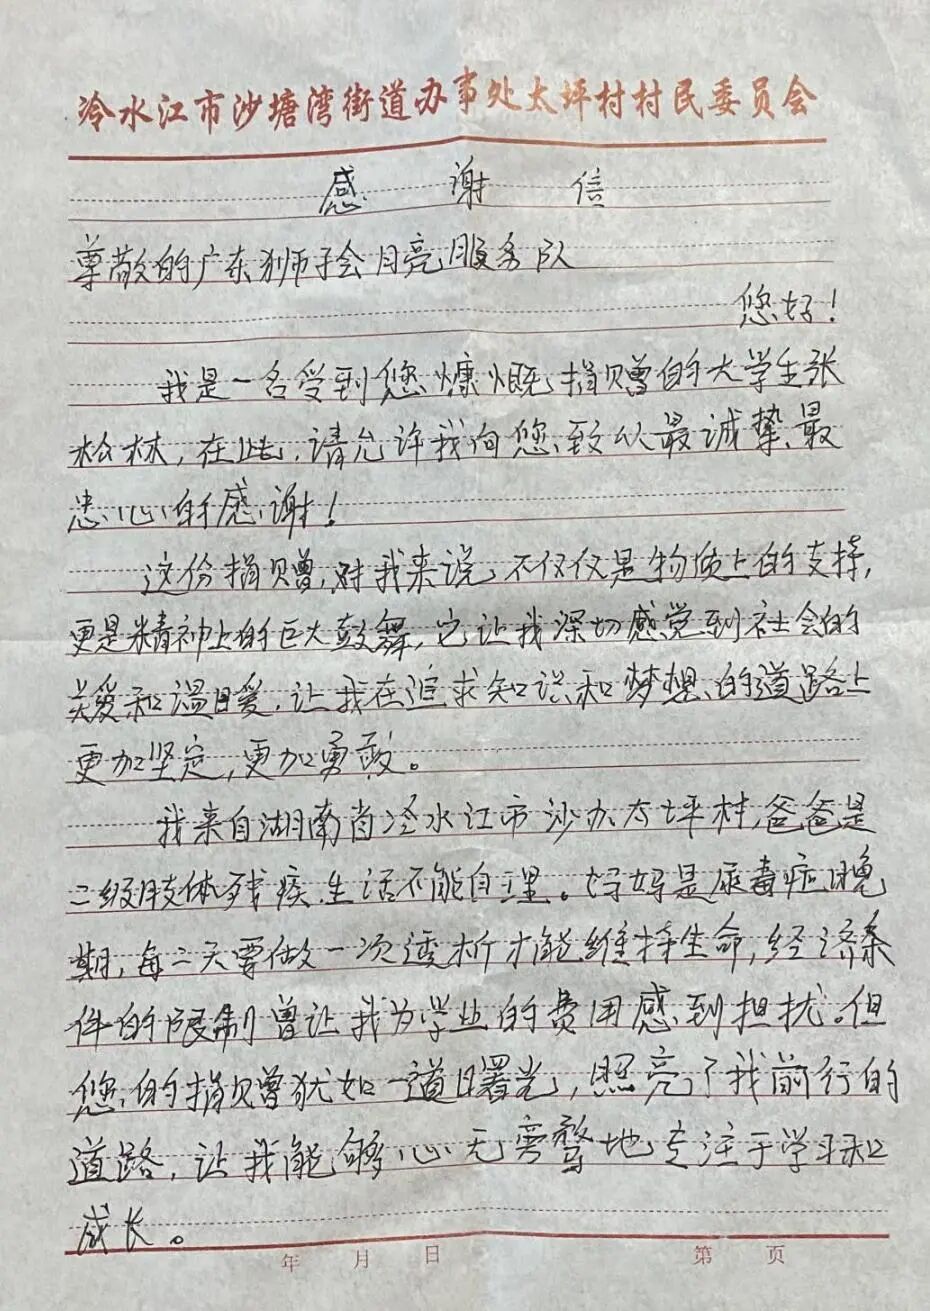 冷水江市沙塘湾街道办事处太坪村村民委员会
感 谢 信
尊敬的广东狮子会月亮服务队
您好!
我是一名受到您慷慨捐赠的大学生张
松林,在此,请允许我向您致以最诚挚、最
忠心的感谢!
这份捐赠,对我来说,不仅仅是物质上的支持,
更是精神上的巨大鼓舞,它让我深切感觉到社会的
关爱和温暖,让我在追求知识和梦想的道路上
更加坚定,更加勇敢。
我来自湖南省冷水江市沙办太坪村,爸爸是
二级肢体残疾,生活不能自理。妈妈是尿毒症晚
期,每二天要做一次透析才能维持生命,经济条
件的限制曾让我为学业的费用感到担扰。但
您的捐赠犹如一道曙光,照亮了我前行的
道路,让我能够心无旁骛地专注于学习和
成长。
年 月 日 第 页